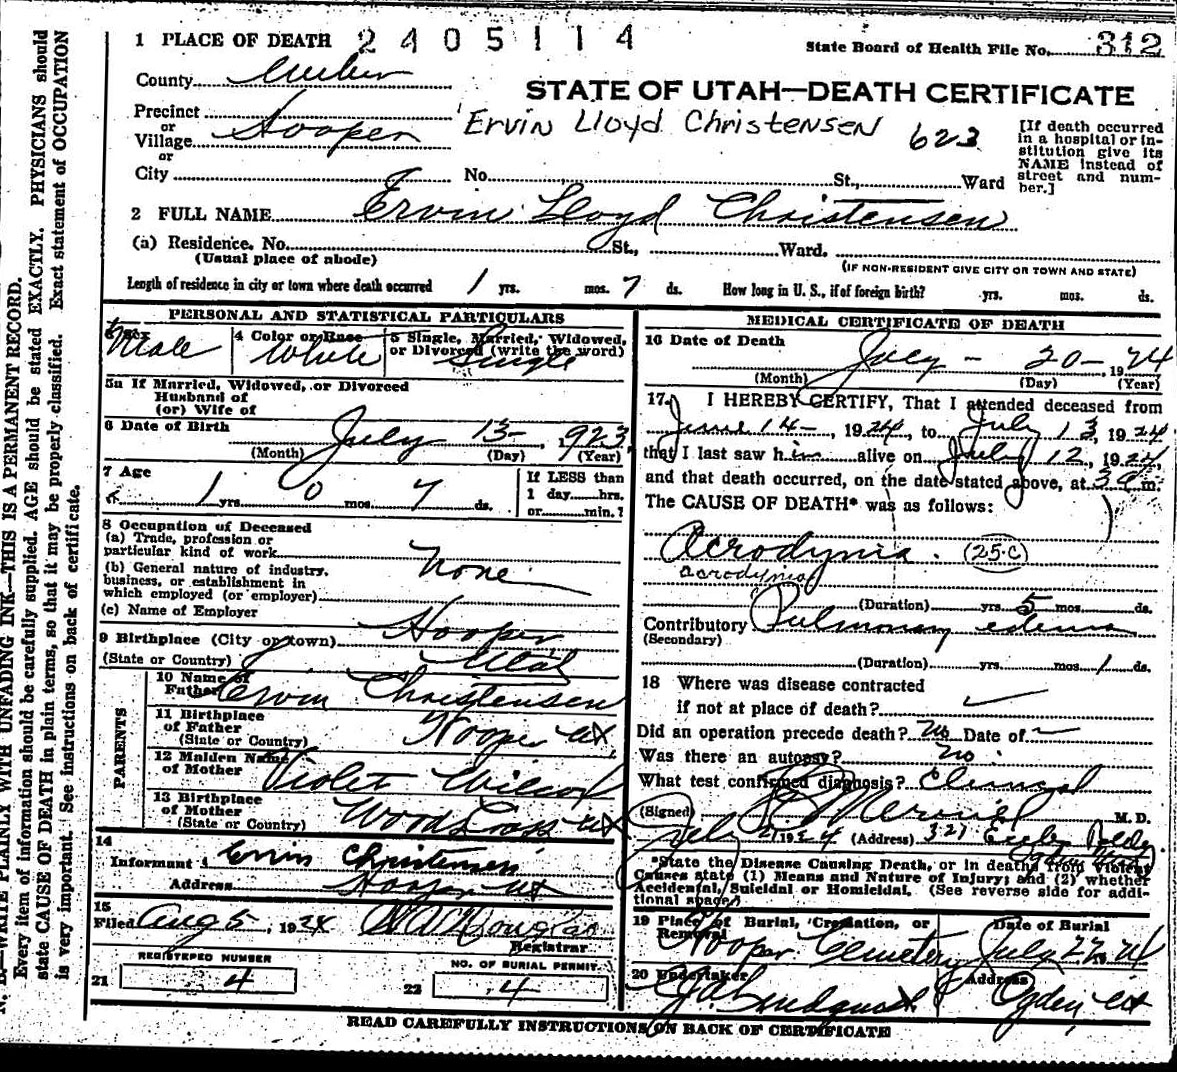 1 PLACE OF DEATH 2405114
State Board of Health File No. 312
County Weber
STATE OF UTAH—DEATH CERTIFICATE
Precinct
or
Village Hooper
Ervin Lloyd Christensen 623
[If death occurred in a hospital or institution give its NAME instead of street and number.]
or
City No. St., Ward
2 FULL NAME Ervin Lloyd Christensen
(a) Residence. No. St., Ward.
(Usual place of abode)
(IF NON-RESIDENT GIVE CITY OR TOWN AND STATE)
Length of residence in city or town where death occurred 1 yrs. mos. 7 ds. How long in U. S., if of foreign birth? yrs. mos. ds.
PERSONAL AND STATISTICAL PARTICULARS
3 Sex Male
4 Color or Race White
5 Single, Married, Widowed, or Divorced (write the word) Single
5a If Married, Widowed, or Divorced
Husband of
(or) Wife of
6 Date of Birth July 13- , 1923
(Month) (Day) (Year)
7 Age 1 yrs 0 mos 7 ds.
If LESS than
1 day hrs.
or min.?
8 Occupation of Deceased
(a) Trade, profession or
particular kind of work None
(b) General nature of industry,
business, or establishment in
which employed (or employer)
(c) Name of Employer
9 Birthplace (City or town) Hooper
(State or Country) Utah
PARENTS
10 Name of
Father Ervin Christensen
11 Birthplace
of Father
(State or Country) Hooper Ut.
12 Maiden Name
of Mother Violet Wilcox
13 Birthplace
of Mother
(State or Country) Woods Cross Ut
14
Informant Ervin Christensen
Address Hooper Ut
15
Filed Aug 5, 1924
Registrar.
REGISTERED NUMBER
21 4
NO. OF BURIAL PERMIT
22 4
MEDICAL CERTIFICATE OF DEATH
16 Date of Death July - 20 - 1924
(Month) (Day) (Year)
17. I HEREBY CERTIFY, That I attended deceased from
June 14-, 1924, to July 13, 1924
that I last saw him alive on July 12, 1924,
and that death occurred, on the date stated above, at 3 a m.
The CAUSE OF DEATH* was as follows:
Acrodynia. (25-C)
acrodynia
(Duration) yrs. 5 mos. ds.
Contributory Pulmonary edema
(Secondary)
(Duration) yrs. mos. 1 ds.
18 Where was disease contracted
if not at place of death?
Did an operation precede death? No Date of
Was there an autopsy? No.
What test confirmed diagnosis? Clinical
(Signed) M. D.
July 21 1924 (Address) 321 Eccles Bldg.
*State the Disease Causing Death, or in deaths from Violent
Causes state (1) Means and Nature of Injury; and (2) whether
Accidental, Suicidal or Homicidal. (See reverse side for additional space.)
19 Place of Burial, Cremation, or Removal
Hooper Cemetery
Date of Burial
July 22 1924
20 Undertaker
Address
Ogden, Ut
READ CAREFULLY INSTRUCTIONS ON BACK OF CERTIFICATE
N. B.—WRITE PLAINLY WITH UNFADING INK—THIS IS A PERMANENT RECORD.
Every item of information should be carefully supplied. AGE should be stated EXACTLY. PHYSICIANS should
state CAUSE OF DEATH in plain terms, so that it may be properly classified. Exact statement of OCCUPATION
is very important. See instructions on back of certificate.